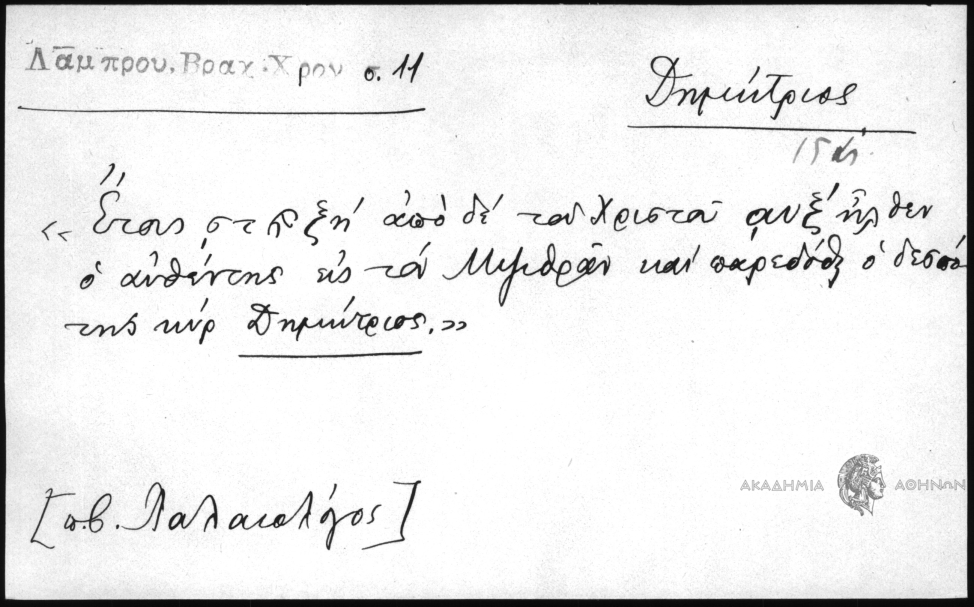 Λάμπρου, Βραχ. Χρον σ. 11
Δημήτριος
15 αι.
« Ἔτους στϡξη' ἀπὸ δέ τοῦ Χριστοῦ αυξ' ἦλθεν
ὁ αὐθέντης εἰς τόν Μυζιθρᾶν καί παρεδόθη ὁ δεσπό
της κύρ Δημήτριος.»
[π.β. Παλαιολόγος]
ΑΚΑΔΗΜΙΑ ΑΘΗΝΩΝ